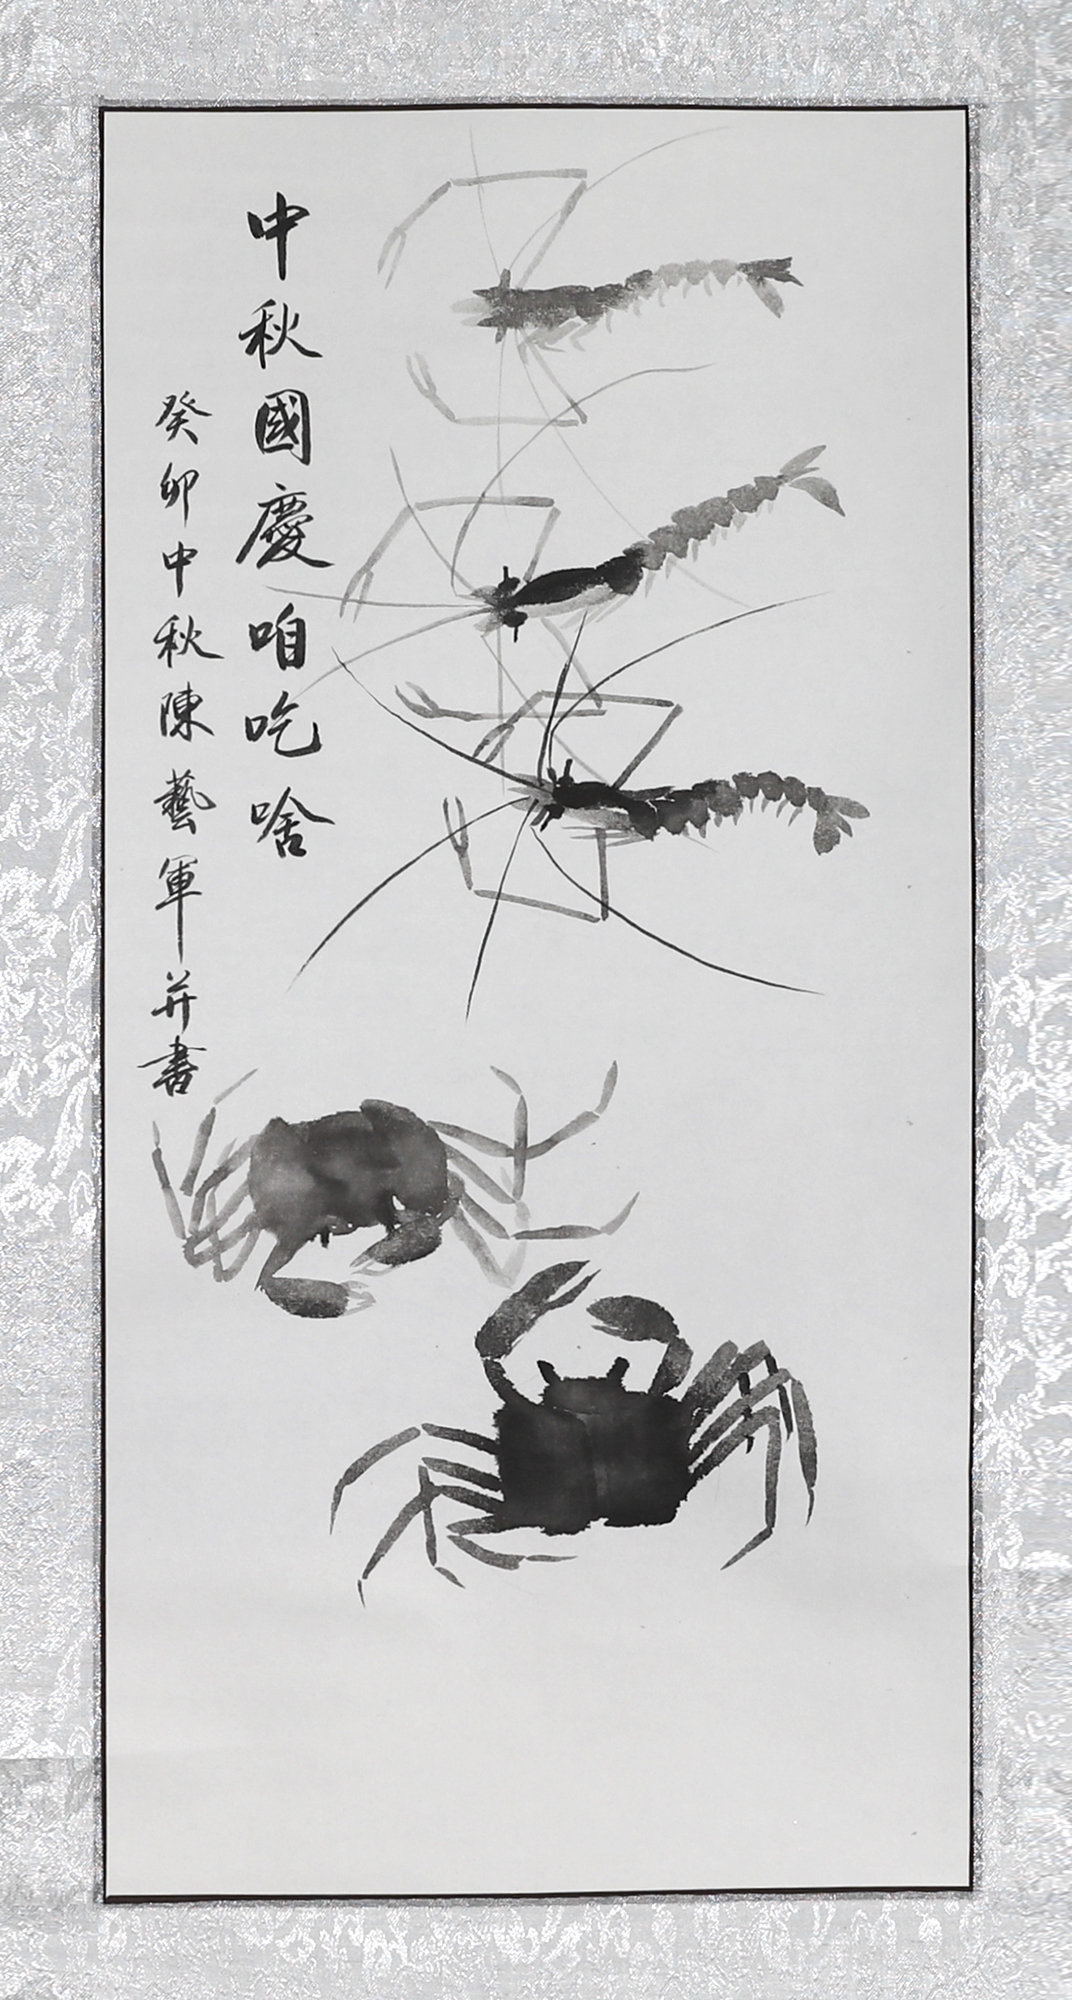 中秋國慶咱吃啥
癸卯中秋陳藝軍并書